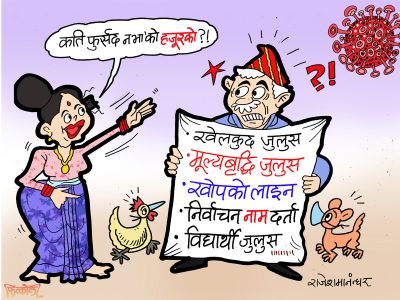 कति फुर्सद नभाको हजूरको ?!
?!
• खेलकुद जुलुस
• मूल्यबृद्धि जुलुस
• खोपको लाइन
• निर्वाचन नाम दर्ता
• विद्यार्थी जुलुस
राजेशमानन्धर